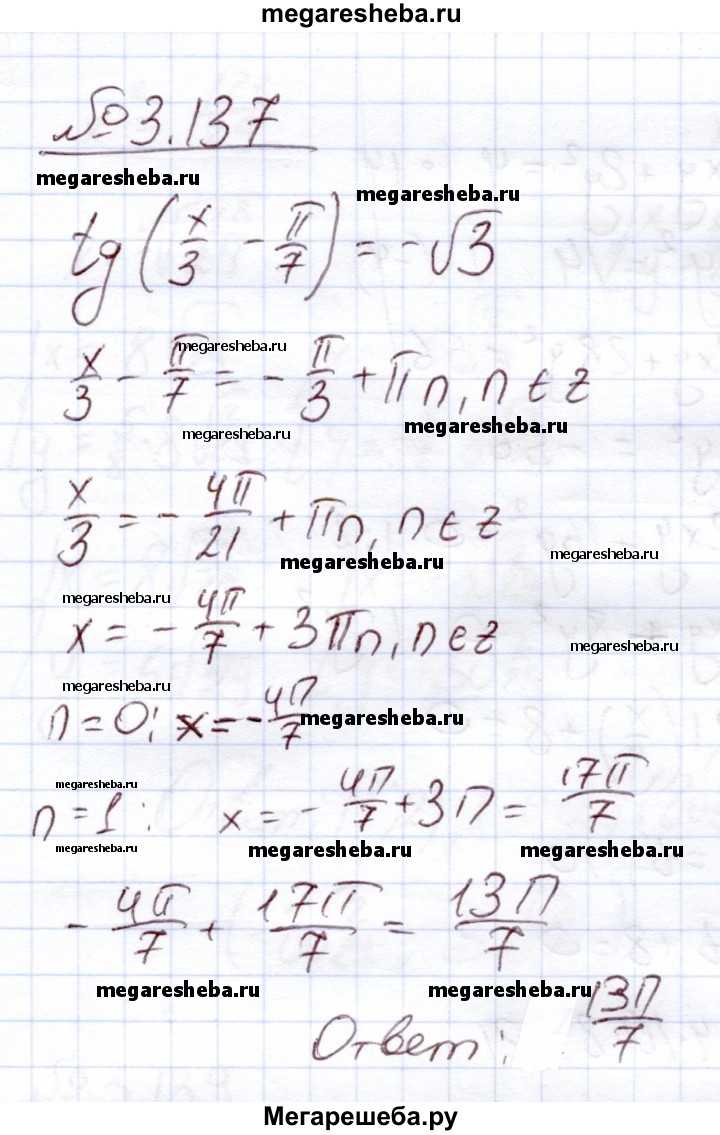 megaresheba.ru
№ 3.137
megaresheba.ru
megaresheba.ru
tg(x/3 - π/7) = -√3
megaresheba.ru
x/3 - π/7 = - π/3 + πn, n ∈ z
megaresheba.ru
megaresheba.ru
x/3 = - 4π/21 + πn, n ∈ z
megaresheba.ru
megaresheba.ru
megaresheba.ru
x = - 4π/7 + 3πn, n ∈ z
megaresheba.ru
megaresheba.ru
n = 0: x = - 4π/7
megaresheba.ru
megaresheba.ru
n = 1: x = - 4π/7 + 3π = 17π/7
megaresheba.ru
megaresheba.ru
megaresheba.ru
- 4π/7 + 17π/7 = 13π/7
megaresheba.ru
megaresheba.ru
Ответ: 13π/7
Мегарешеба.ру